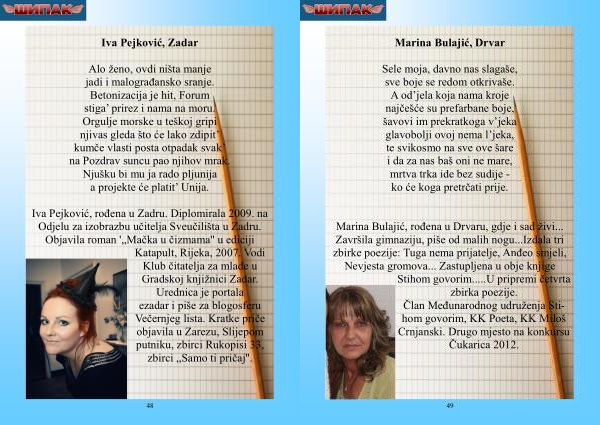 ШИПАК
Iva Pejković, Zadar
Alo ženo, ovdi ništa manje
jadi i malograđansko sranje.
Betonizacija je hit, Forum
stiga’ prirez i nama na moru.
Orgulje morske u teškoj gripi
njivas gleda što će lako zdipit’
kumče vlasti posta otpadak svak’
na Pozdrav suncu pao njihov mrak.
Njušku bi mu ja rado pljunija
a projekte će platit’ Unija.
Iva Pejković, rođena u Zadru. Diplomirala 2009. na
Odjelu za izobrazbu učitelja Sveučilišta u Zadru.
Objavila roman '„Mačka u čizmama" u ediciji
Katapult, Rijeka, 2007. Vodi
Klub čitatelja za mlade u
Gradskoj knjižnici Zadar.
Urednica je portala
ezadar i piše za blogosferu
Večernjeg lista. Kratke priče
objavila u Zarezu, Slijepom
putniku, zbirci Rukopisi 33,
zbirci „Samo ti pričaj".
48
ШИПАК
Marina Bulajić, Drvar
Sele moja, davno nas slagaše,
sve boje se redom otkrivaše.
A od’jela koja nama kroje
najčešće su prefarbane boje,
šavovi im prekratkoga v’jeka
glavobolji ovoj nema l’jeka,
te svikosmo na sve ove šare
i da za nas baš oni ne mare,
mrtva trka ide bez sudije -
ko će koga pretrčati prije.
Marina Bulajić, rođena u Drvaru, gdje i sad živi...
Završila gimnaziju, piše od malih nogu...Izdala tri
zbirke poezije: Tuga nema prijatelje, Anđeo smjeli,
Nevjesta gromova... Zastupljena u obje knjige
Stihom govorim.....U pripremi četvrta
zbirka poezije.
Član Međunarodnog udruženja Sti-
hom govorim, KK Poeta, KK Miloš
Crnjanski. Drugo mjesto na konkursu
Čukarica 2012.
49